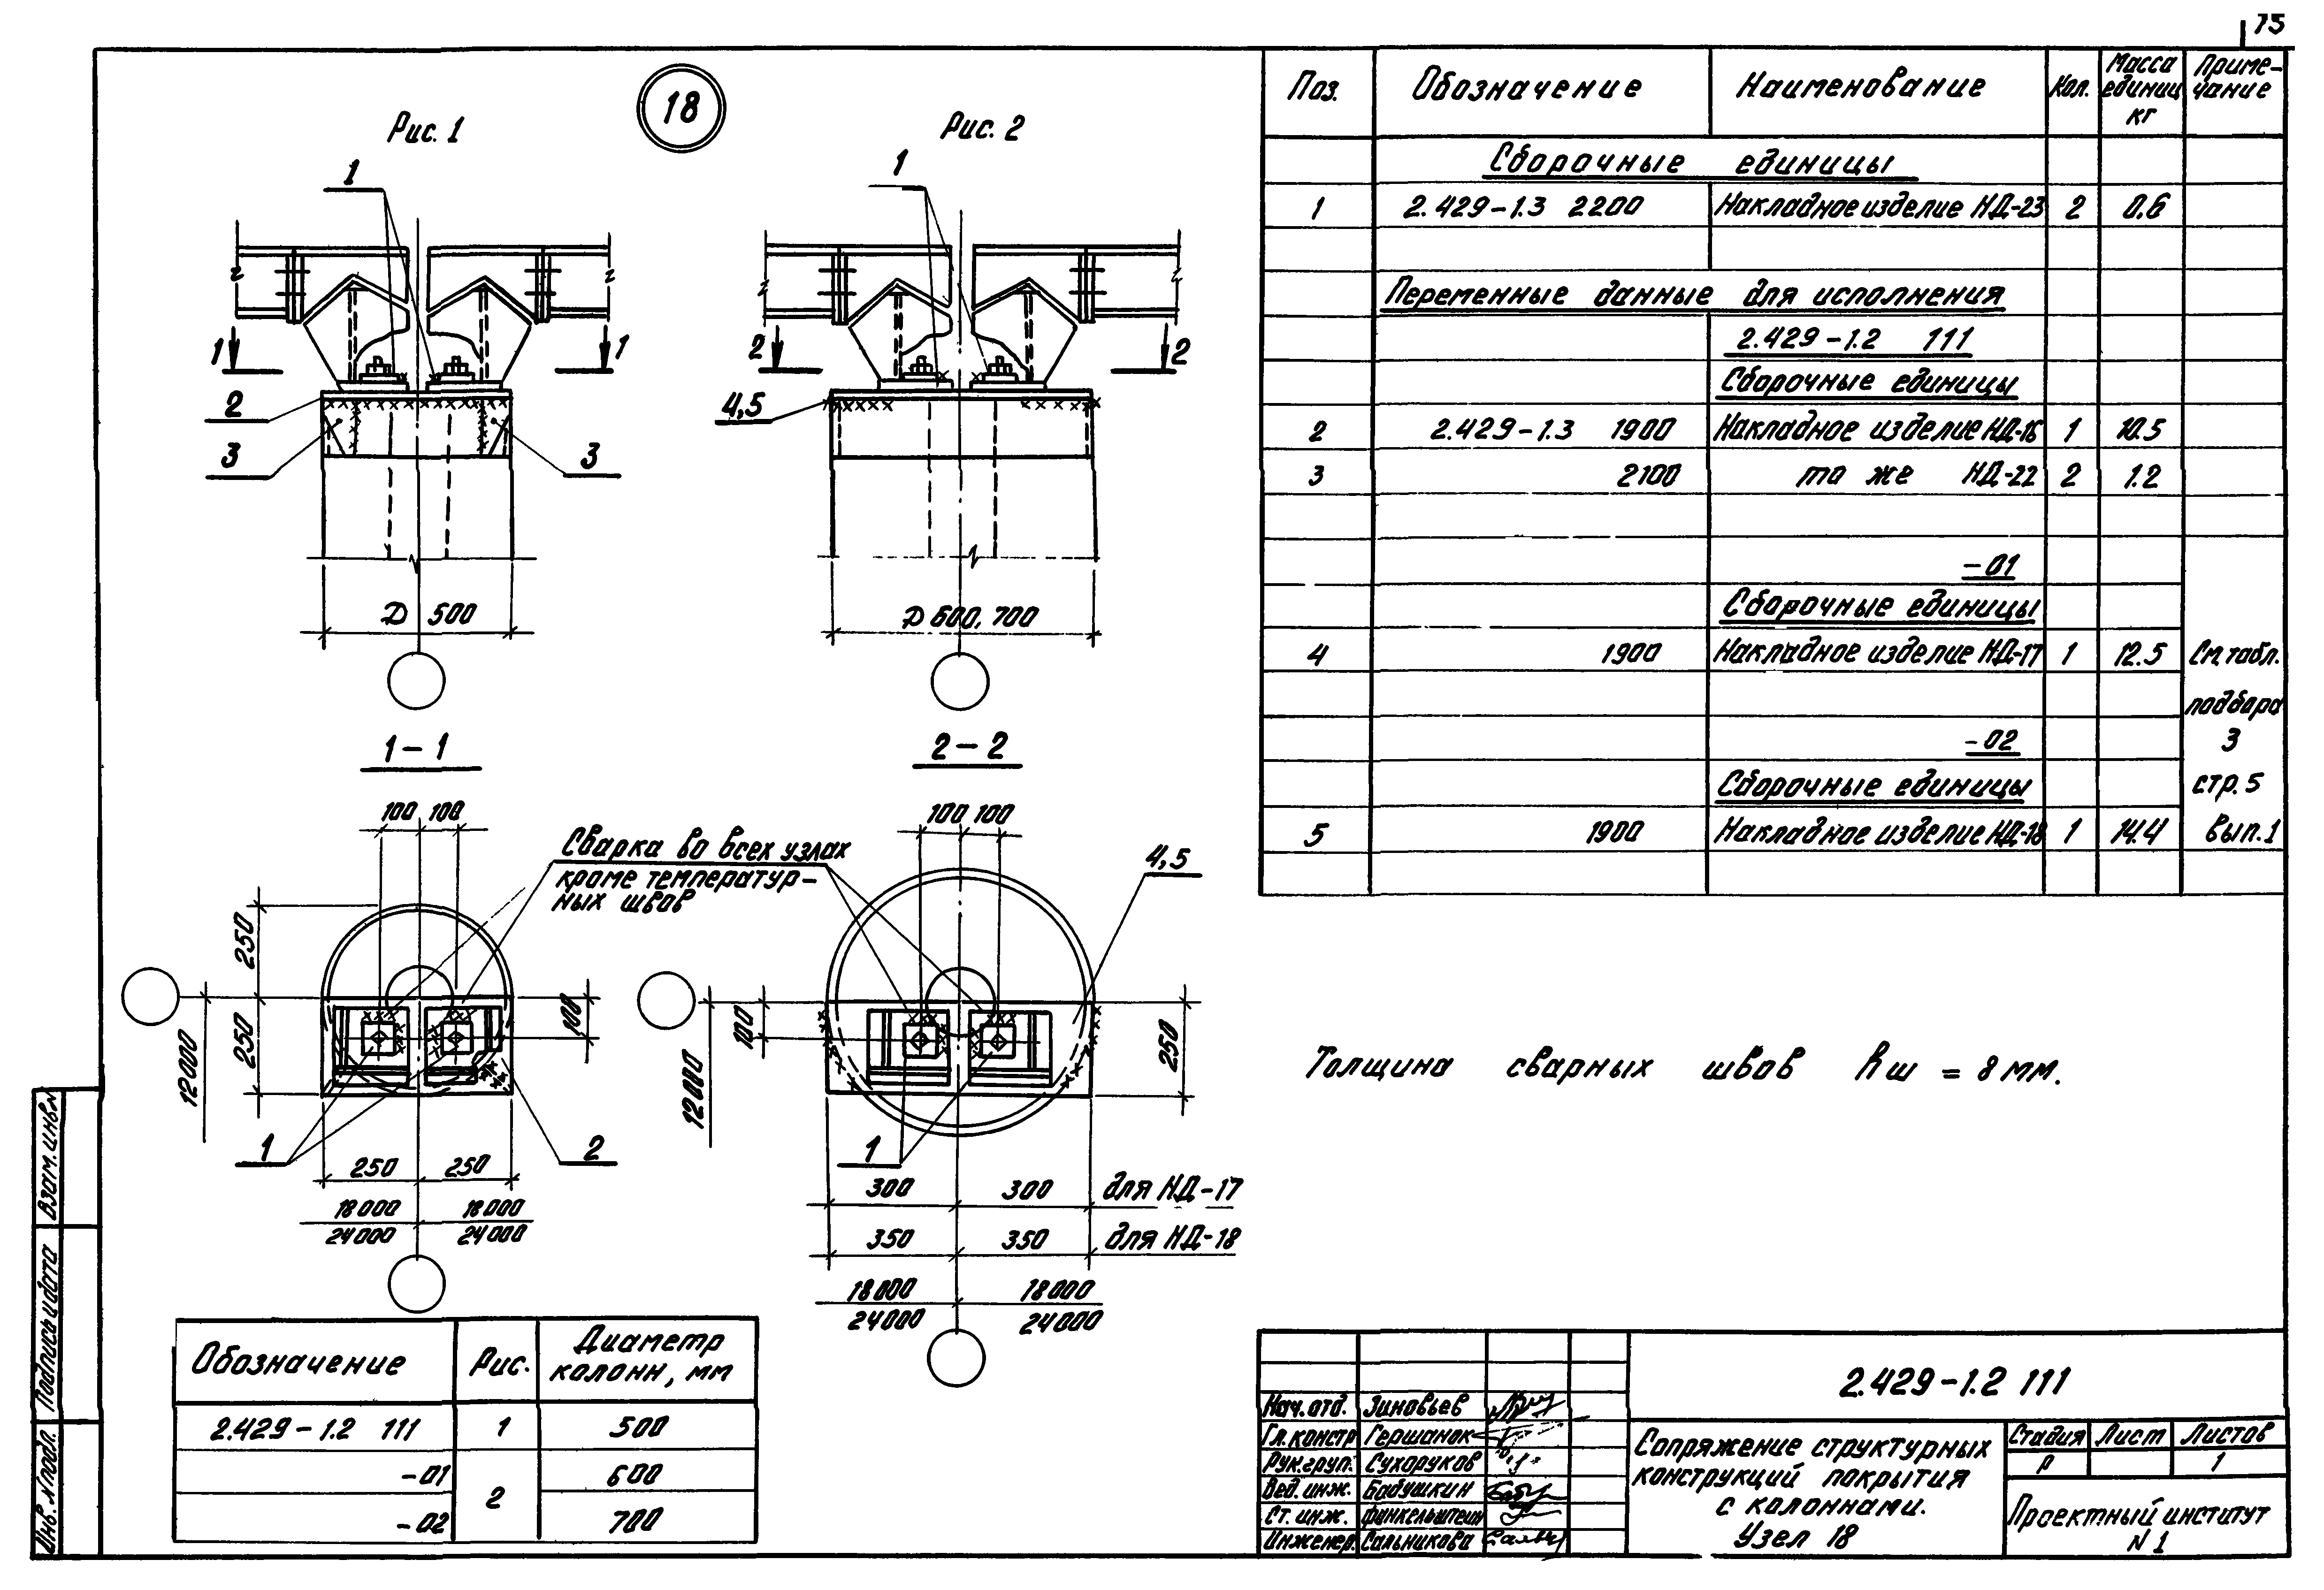 75
18
Рис. 1
Рис. 2
1
1
1
1
2
2
2
3
3
4,5
Д 500
Д 600, 700
1-1
2-2
100 100
100 100
Сварка во всех узлах
кроме температур-
ных швов
4,5
250
250
12000
100
100
12000
250
1
2
1
250 250
18000 18000
24000 24000
300 300 для НД-17
350 350 для НД-18
18000 18000
24000 24000
Обозначение Рис. Диаметр колонн, мм
2.429-1.2 111 1 500
-01 2 600
-02 700
Поз. Обозначение Наименование Кол. Масса единиц кг Приме-чание
Сборочные единицы
1 2.429-1.3 2200 Накладное изделие НД-23 2 0.6
Переменные данные для исполнения
2.429-1.2 111
Сборочные единицы
2 2.429-1.3 1900 Накладное изделие НД-16 1 10.5
3 2100 то же НД-22 2 1.2
-01
Сборочные единицы
4 1900 Накладное изделие НД-17 1 12.5 См. табл.
подбора
-02 3
Сборочные единицы стр. 5
5 1900 Накладное изделие НД-18 1 14.4 Вып. 1
Толщина сварных швов hш = 8 мм.
2.429-1.2 111
Нач. отд. Зиновьев
Гл. констр Гершанок
Рук. груп. Сухоруков
Вед. инж. Бабушкин
Ст. инж. Финкельштейн
Инженер. Сальникова
Сопряжение структурных
конструкций покрытия
с колоннами.
Узел 18
Стадия Лист Листов
Р 1
Проектный институт
N 1
Взам. инв. N
Подпись и дата
Инв. N подл.